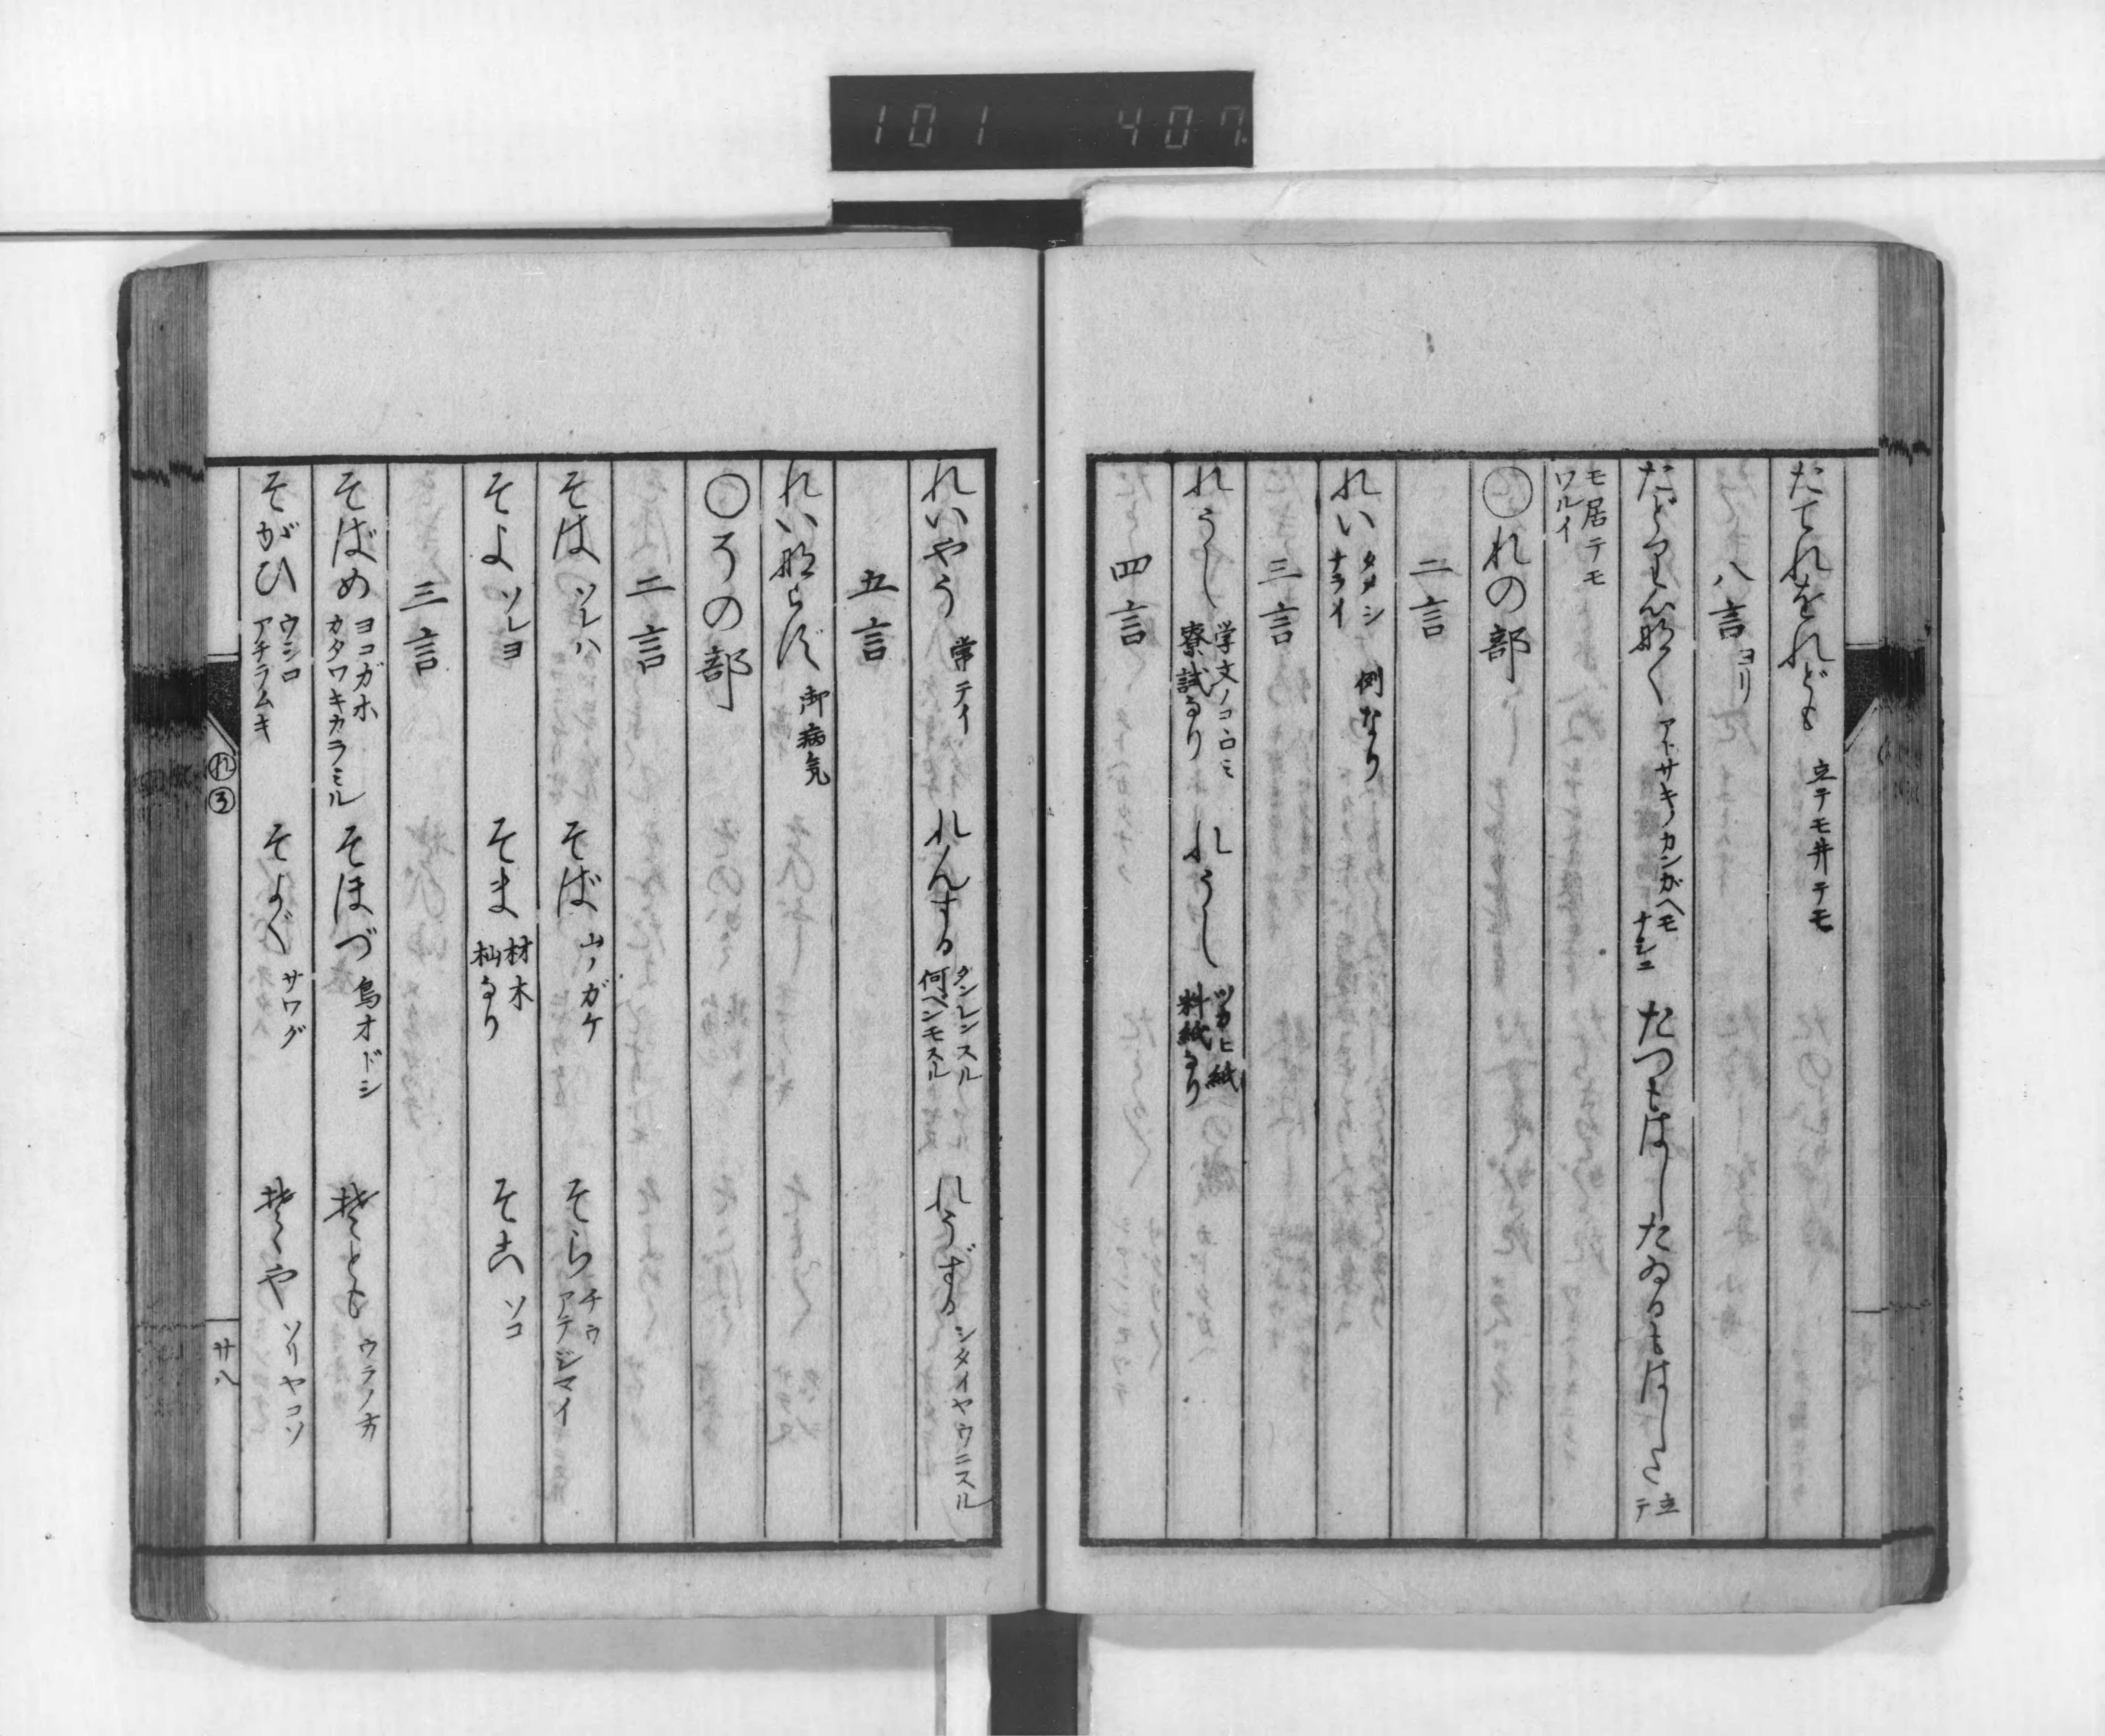 101 407
たてれをれども 立テモ井テモ
八言ヨリ
たどり第く アトサキノカンガヘモナシニ たつもはしたゐるもはした 立テ
モ居テモワルイ
○れの部
二言
れい タメシ ナライ 例なり
三言
れうし 学文ノコヽロミ 寮試なり れうし ツカヒ紙 料紙なり
四言
れいやう 常テイ れんする タンレンスル 何ベンモスル れうずる シタイヤウニスル
五言
れいならず 御病気
○その部
二言
そは ソレハ そば 山ノガケ そら チウ アテジマイ
そよ ソレヨ そま 材木 杣なり そこ ソコ
三言
そばめ ヨコガホ カタワキカラミル そほづ 鳥オドシ そとも ウラノ方
そがひ ウシロ アチラムキ そよぐ サワグ そゝや ソリヤコソ
れ そ
廿八